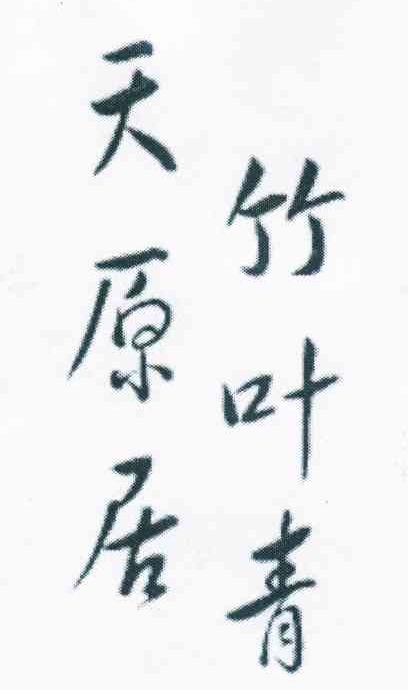 竹叶青
天原居